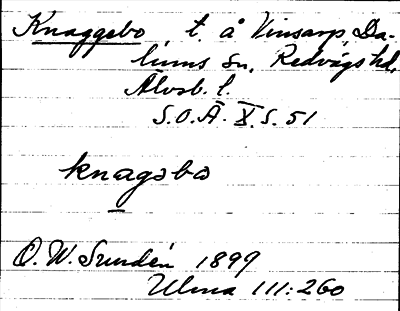 Knaggebo, t. å Vinsarp, Da-
lums sn, Redvägs hd,
Älvsb. l.
S.O.Ä. X. S. 51
knagsbo
O. W. Sundén 1899
Ulma 111:260